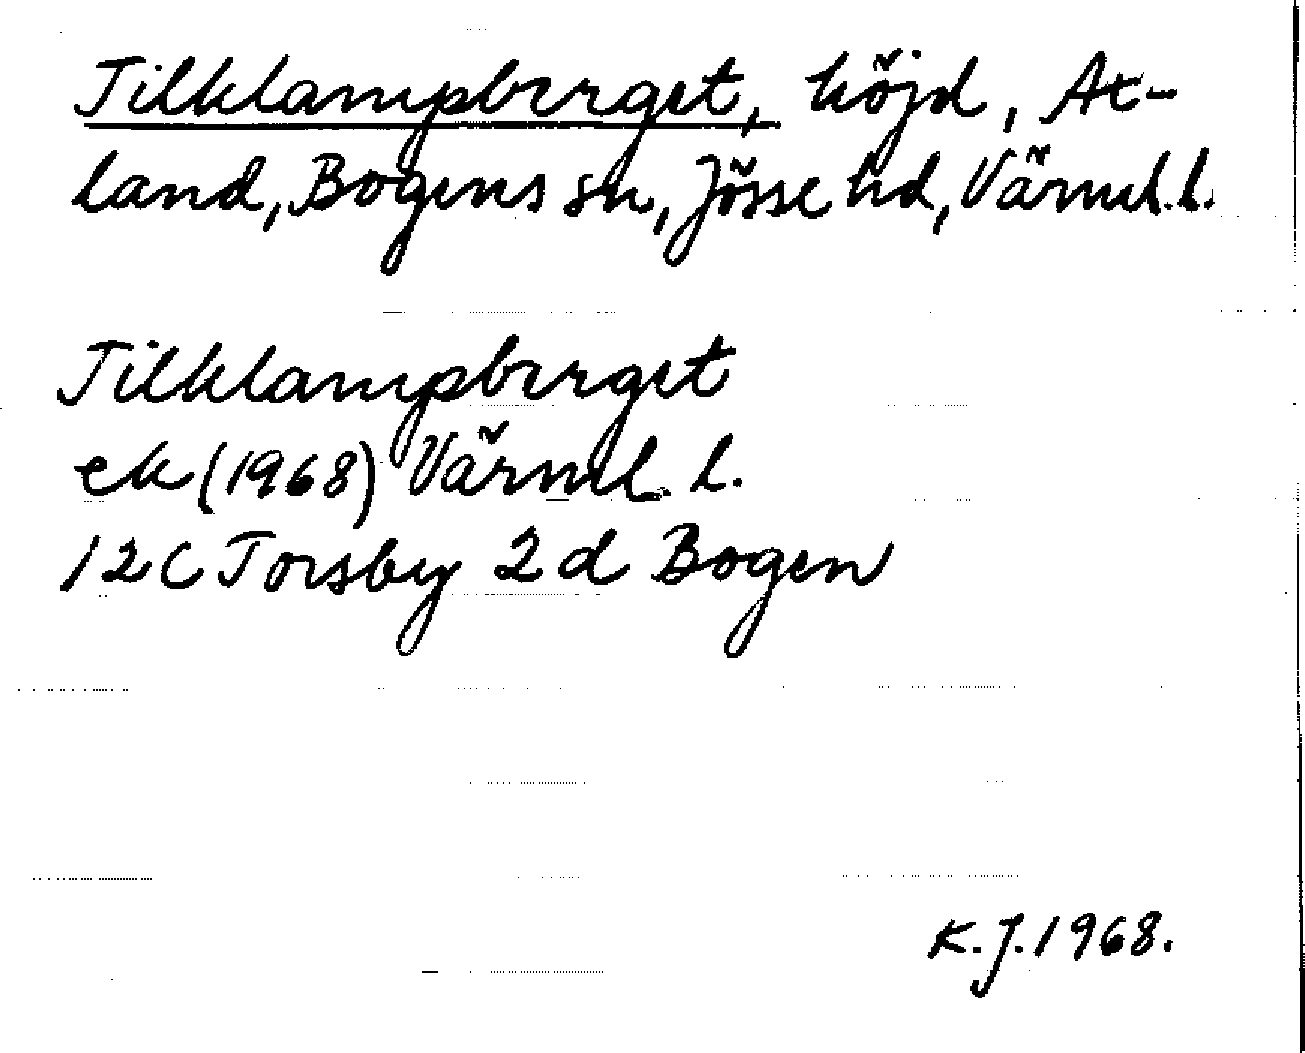 Tilklampberget, höjd, At-
land, Bogens sn, Jösse hd, Värml.l.
Tilklampberget
ek (1968) Värml. l.
12C Torsby 2d Bogen
K.J. 1968.